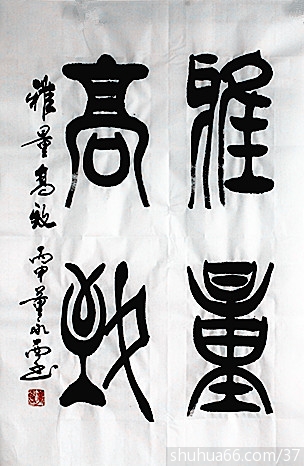 雅量
高致
雅量高致 丙申董永西书
shuhua66.com/37